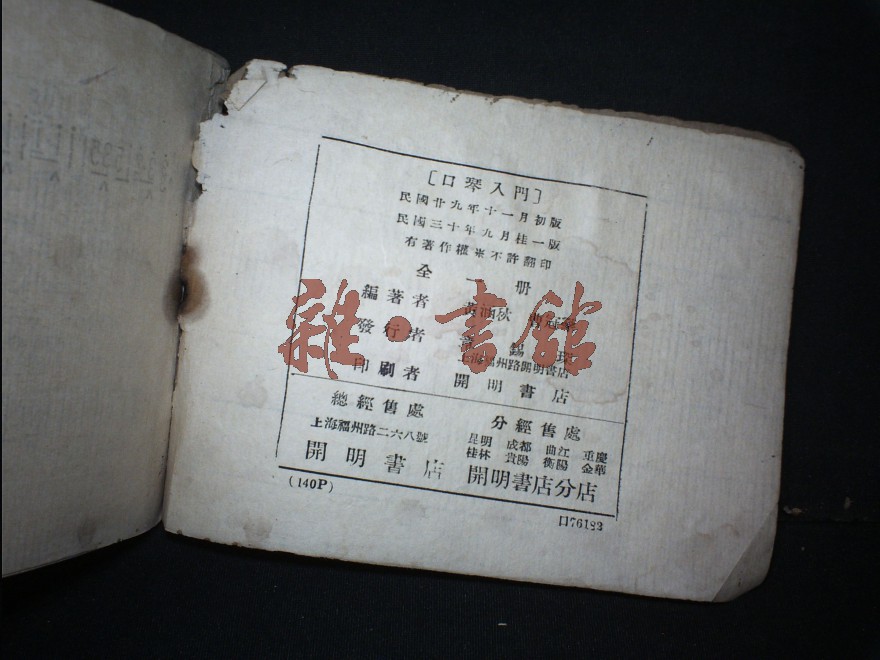 ［口琴入門］
民國廿九年十一月初版
民國三十年九月桂一版
有著作權不許翻印
全一册
編著者 黃涵秋
發行者 錫
上海福州路開明書店
印刷者 開明書店
總經售處
上海福州路二六八號
開明書店
分經售處
昆明 成都 曲江 重慶
桂林 貴陽 衡陽 金華
開明書店分店
(140P)
口76183
雜·書館